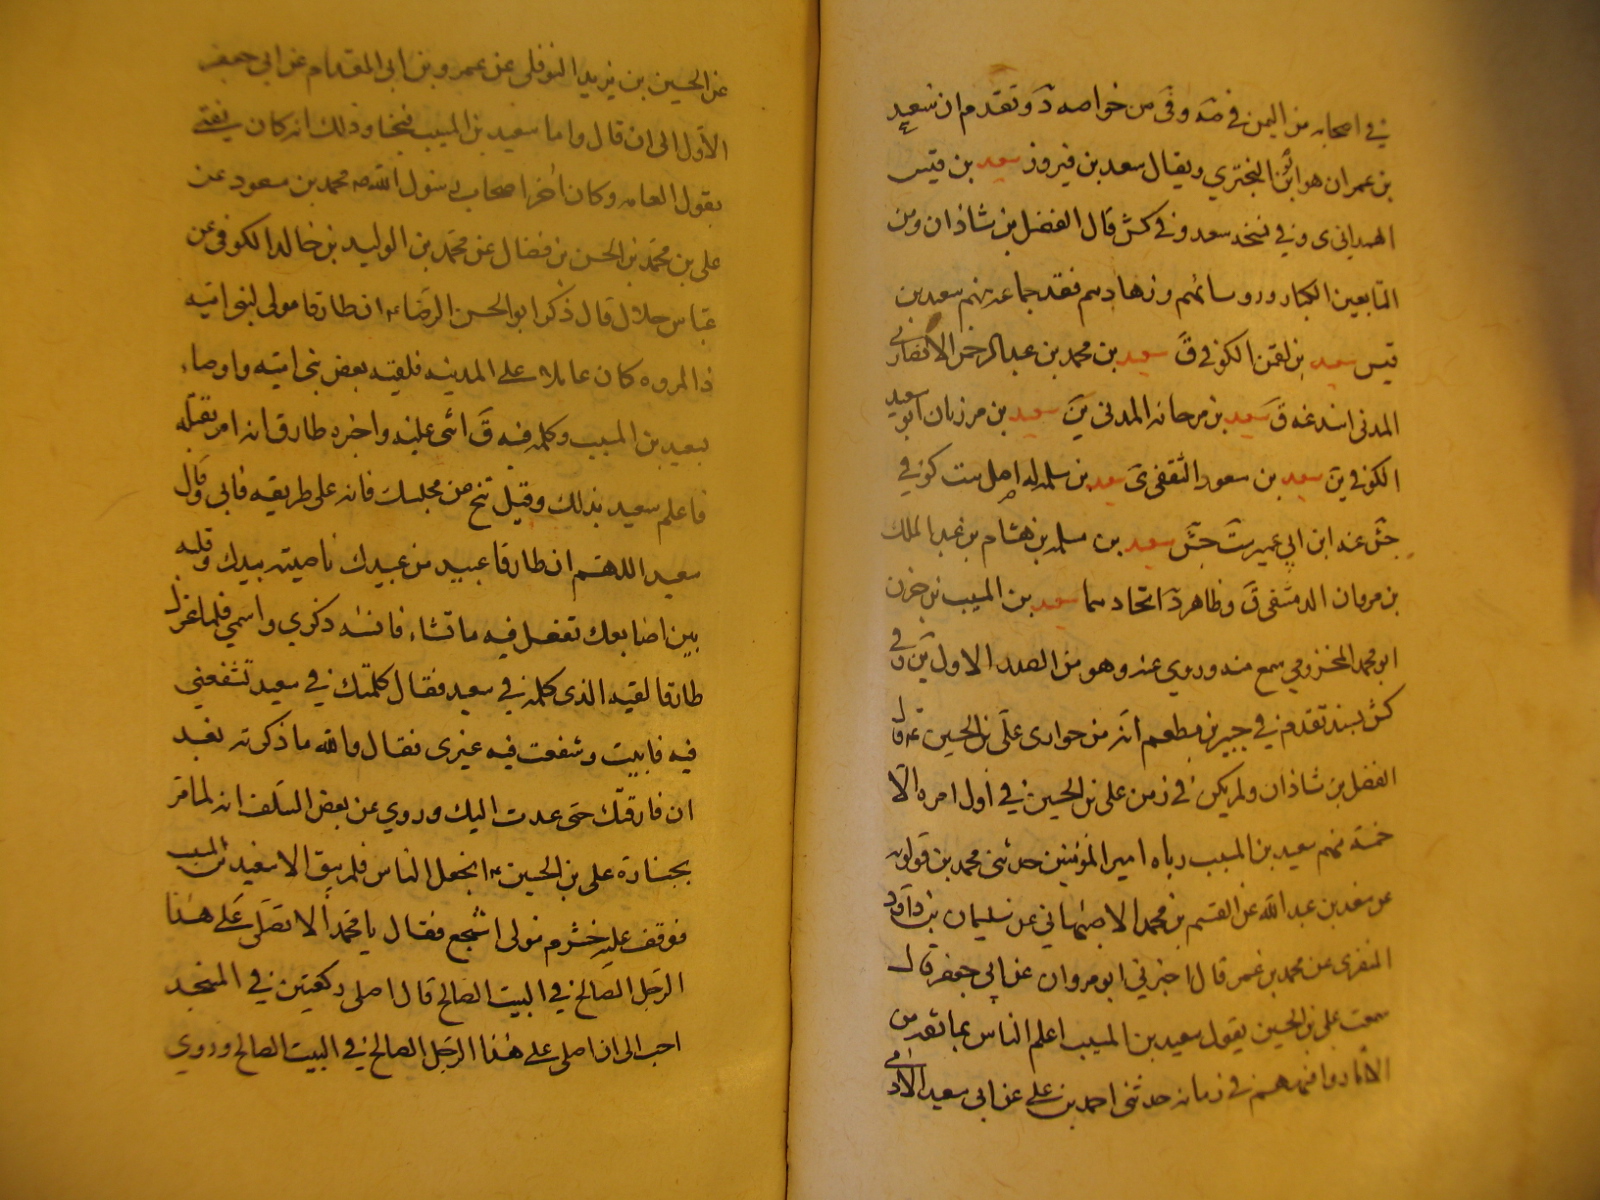 في اصحابه من اليمن في صه وفى من خواصه د وتقدم ان سعيد
بن عمران هو ابن البختري ويقال سعد بن فيروز سعيد بن قيس
الهمداني ى وفي نسخه سعد وفي كش قال الفضل بن شاذان ومن
التابعين الكبار وروسائهم وزهادهم فقد جماعه منهم سعد بن
قيس سعيد بن لقمن الكوفي ق سعيد بن محمد بن عبد الرحمن الانصاري
المدني اسند عنه ق سعيد بن مرجانه المدني ين سعيد بن مرزبان ابو سعيد
الكوفي ين سعيد بن مسعود الثقفي ى سعيد بن سلمه له اصل ست كوفي
جش عنه ابن ابي عمير ست جش سعيد بن مسلمه بن هشام بن عبد الملك
بن مروان الدمشقي ق وظاهر د اتحادهما سعيد بن المسيب بن حزن
ابو محمد المخزومي سمع منه وروي عنه وهو من الصدر الاول ين وفي
كش بسند تقدم في جبير بن مطعم انه من حوارى على بن الحسين ع قال
الفضل بن شاذان ولم يكن في زمن على بن الحسين في اول امره الا
خمسة منهم سعيد بن المسيب رباه امير المؤمنين حدثني محمد بن قولويه
عن سعد بن عبد الله عن القسم بن محمد الاصبهاني عن سليمان بن داود
المنقرى عن محمد بن عمر قال اخبرني ابو مروان عن ابى جعفر قال
سمعت على بن الحسين يقول سعيد بن المسيب اعلم الناس بما تقدم من
الاثار وافهمهم في زمانه حدثني احمد بن علي عن ابى سعيد الادمي
عن الحسين بن يزيد النوفلى عن عمرو بن ابى المقدام عن ابى جعفر
الاول الى ان قال واما سعيد بن المسيب فنجا وذلك انه كان يفتى
بقول العامه وكان اخر اصحاب رسول الله ص محمد بن مسعود عن
على بن محمد بن الحسن بن فضال عن محمد بن الوليد بن خالد الكوفي عن
عباس هلال قال ذكر ابو الحسن الرضا ع ان طارقا مولى لبنى اميه
ذا المروه كان عاملا على المدينه فلقيه بعض بنى اميه واوصاه
بسعيد بن المسيب وكلمه فيه ق اثنى عليه واخبره طارق انه امر بقتله
فاعلم سعيد بذلك وقيل تنح عن مجلسك فانه على طريقه فابى وقال
سعيد اللهم ان طارقا عبيد من عبيدك ناصيته بيدك وقلبه
بين اصابعك تفعل فيه ما تشاء فانسه ذكري واسمي فلما عزل
طارقا لقيه الذى كلمه في سعيد فقال كلمتك في سعيد تشفعني
فيه فابيت وشفعت فيه غيرى فقال والله ما ذكرته بعد
ان فارقتك حتى عدت اليك وروي عن بعض السلف انه لما مر
بجنازة على بن الحسين ع انجفل الناس فلم يبق الا سعيد بن المسيب
فوقف عليه خشرم مولى اشجع فقال يا محمد الا تصلى على هذا
الرجل الصالح في البيت الصالح قال اصلى ركعتين في المسجد
احب الى ان اصلى على هذا الرجل الصالح في البيت الصالح وروي